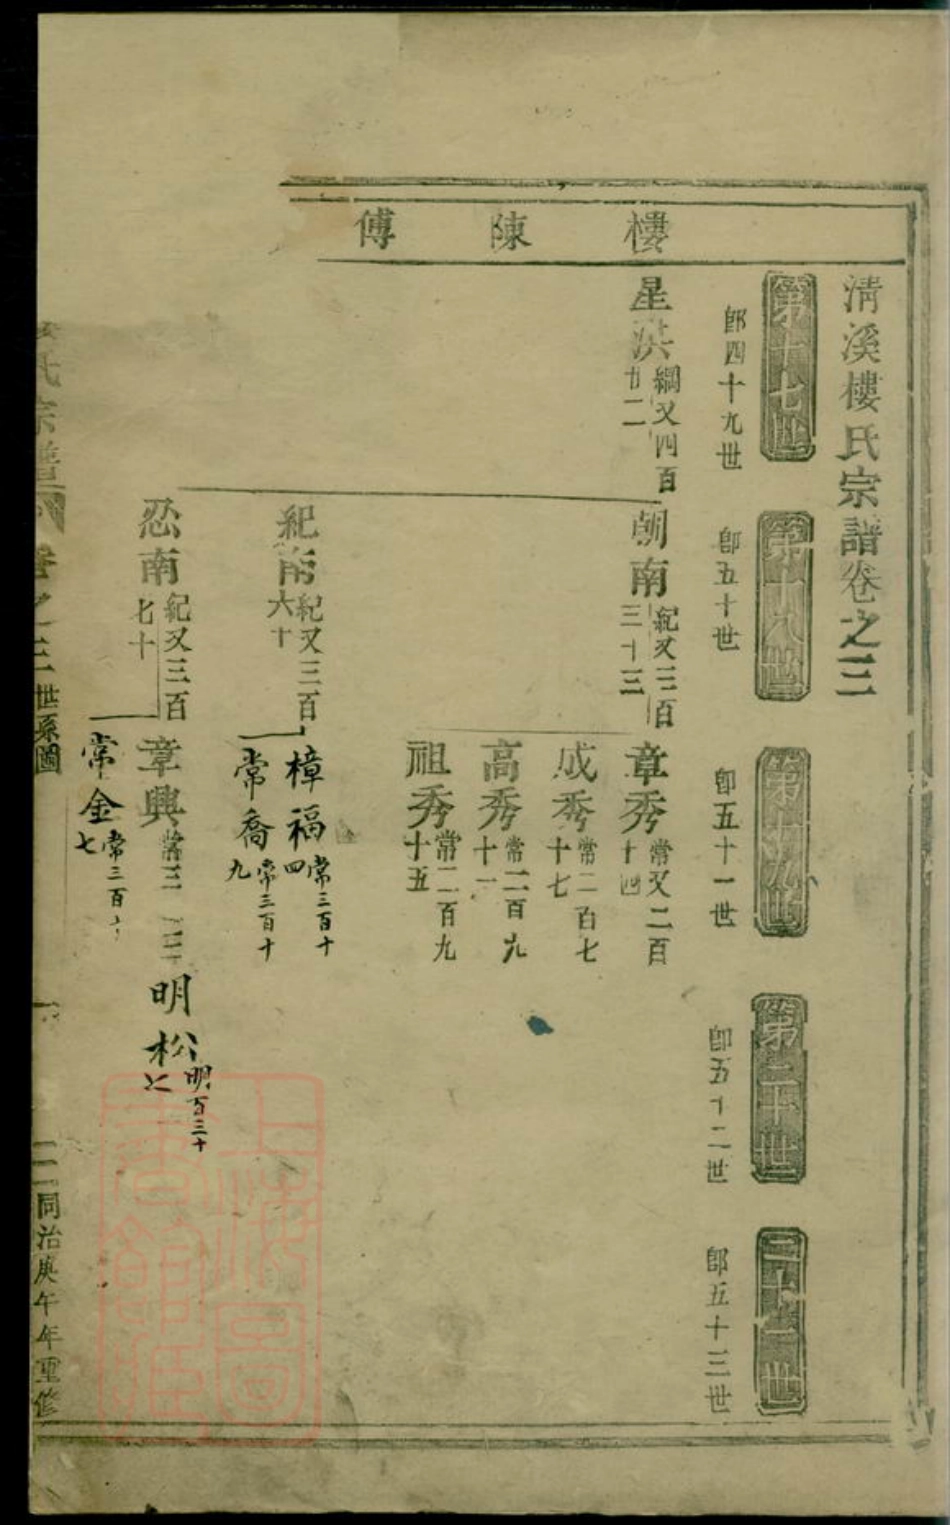 清溪樓氏宗譜卷之三
樓 陳 傅
第十七世
即四十九世
第十八世
即五十世
第十九世
即五十一世
第二十世
即五十二世
二十一世
即五十三世
星洪
綱又四百
廿二
朝南
紀又三百
三十三
紀南
紀又三百
六十
忍南
紀又三百
七十
章秀
常又二百
十四
成秀
常二百七
十七
高秀
常二百九
十一
祖秀
常二百九
十五
樟福
常三百十
四
常喬
常三百十
九
章興
常三
常金
常三百
七
明松
明百三十
七
氏宗譜
卷之三
世系圖
同治庚午年重修
上海圖書館藏